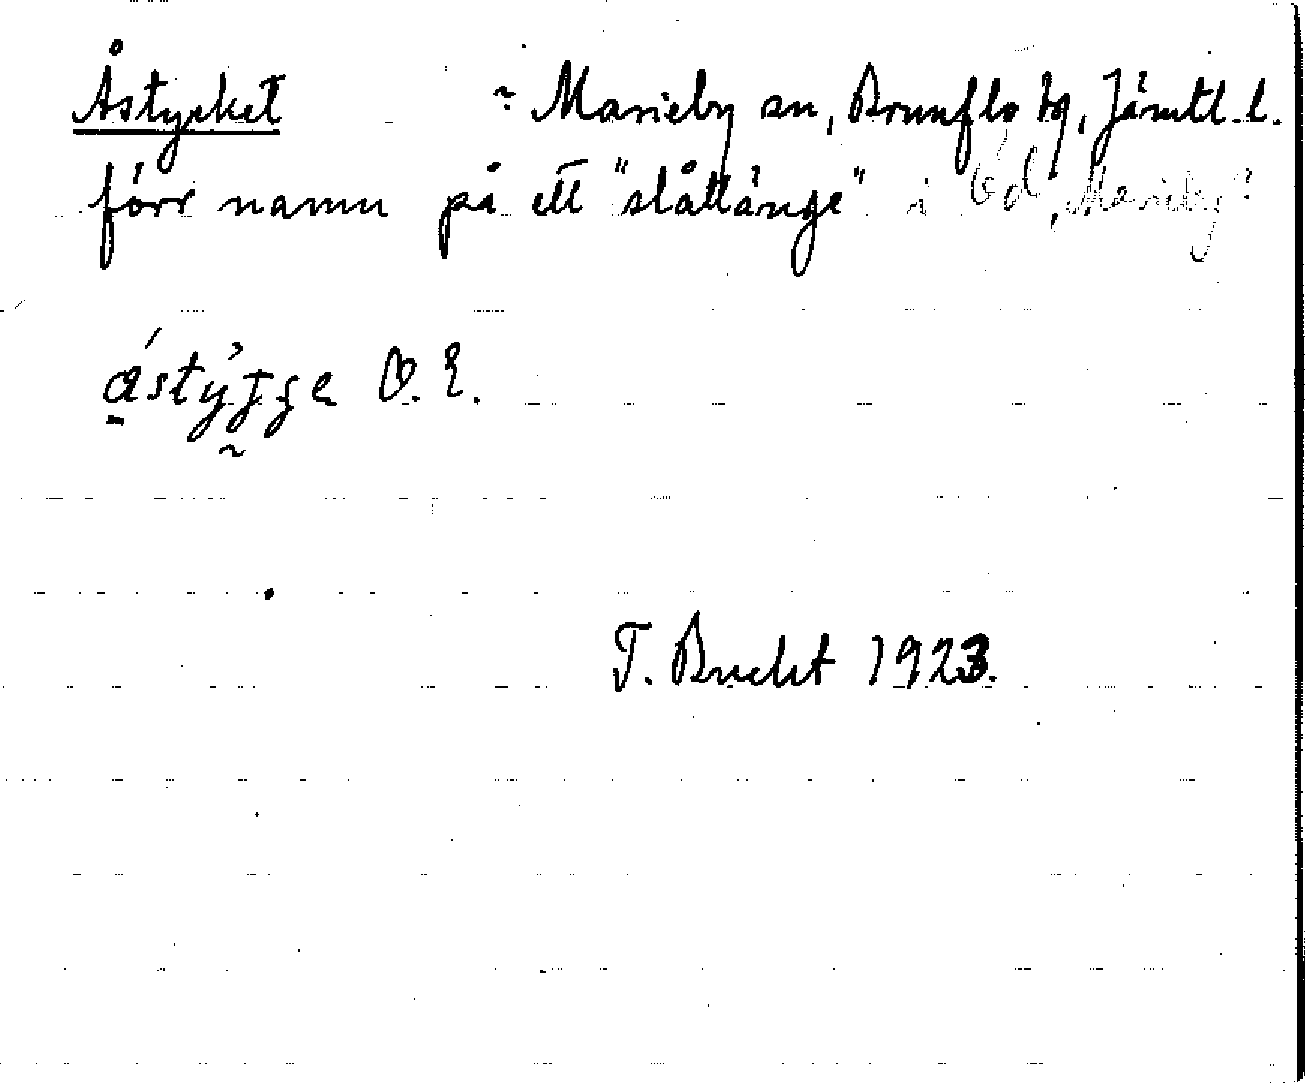 Åstycket ~ Marieby sn, Brunflo tg, Jämtl. l.
förr namn på ett "slåttänge" i Ød, Marieby
O. E.
T. Bucht 1923.